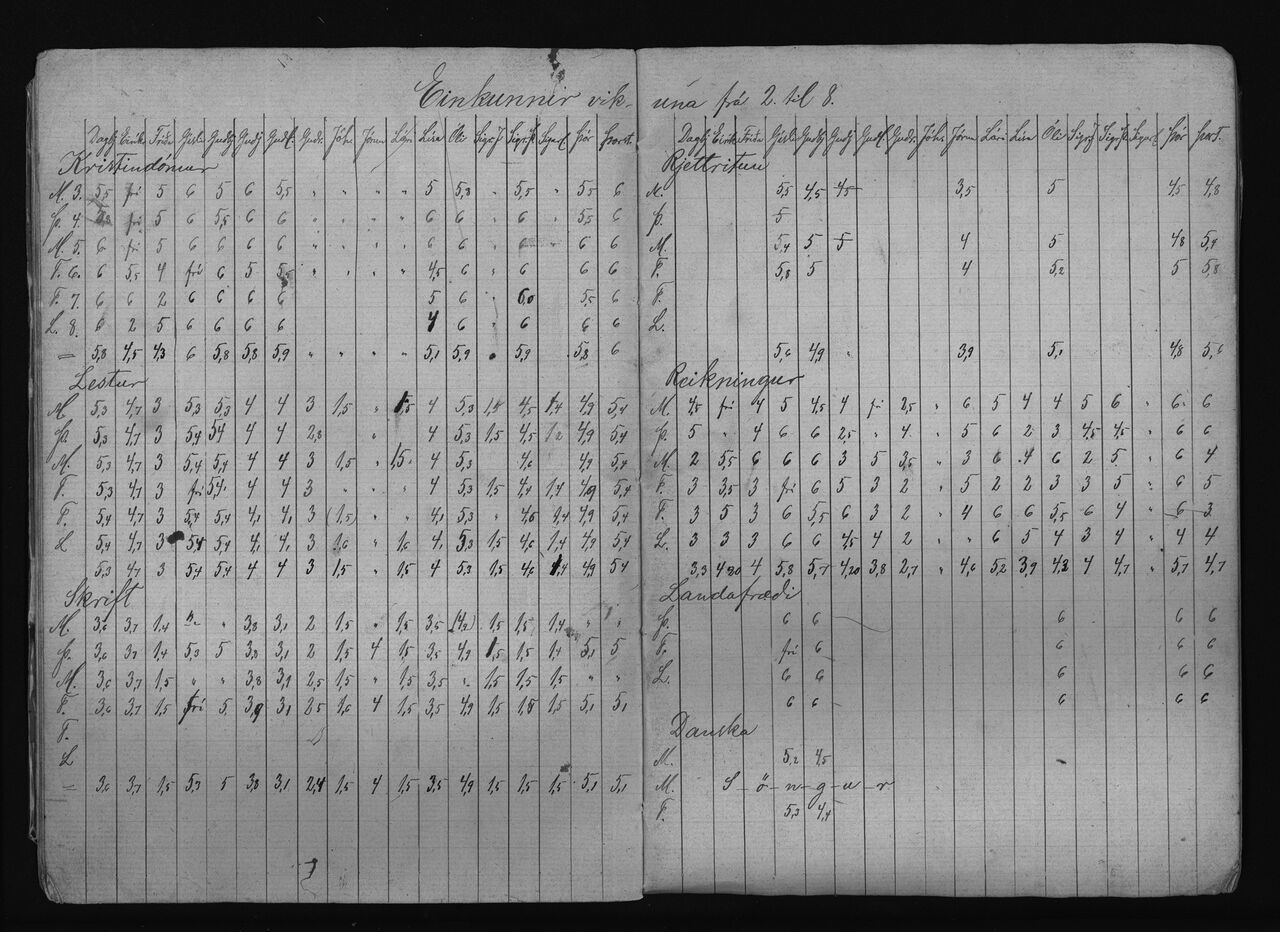 Einkunnir vik-
Dagbj Eirik Friðr Gísli Guðbj Guðj Guðl. Guðr. Jóh. Jórun Lári Lísa Óli Sigrj Sigrst Sigurl. Þór Þorst.
Kristindómur
M. 3. 5,5 frí 5 6 5 6 5,5 " " " " 5 5,8 " 5,5 " 5,5 6
Þ. 4. frí 5 6 5,5 6 6 " " " " 6 6 " 6 " 5,5 6
M. 5. 6 frí 5 6 6 6 6 " " " " 6 6 " 6 " 6 6
F. 6. 6 5,5 4 frí 6 5 5,5 " " " " 4,5 6 " 6 " 6 6
F. 7. 6 6 2 6 6 6 6 5 6 " 6,0 5,5 6
L. 8. 6 2 5 6 6 6 6 4 6 " 6 6 6
= 5,8 4,5 4,3 6 5,8 5,8 5,9 " " " " 5,1 5,9 " 5,9 " 5,8 6
Lestur
M. 5,3 4,7 3 5,3 5,3 4 4 3 1,5 " 1,5 4 5,3 1,5 4,5 1,4 4,9 5,4
Þ. 5,3 4,7 3 5,4 5,4 4 4 2,8 " " 4 5,3 1,5 4,5 1,2 4,9 5,4
M. 5,3 4,7 3 5,4 5,4 4 4 3 1,5 " 1,5 4 5,3 4,6 4,9 5,4
F. 5,3 4,7 3 frí 5,4 4 4 3 " " " 4 5,3 1,5 4,4 1,4 4,9 5,4
F. 5,4 4,7 3 5,4 5,4 4,1 4,1 3 (1,5) " " 4,1 5,3 " 4,6 1,4 4,9 5,4
L 5,4 4,7 3 5,4 5,4 4,1 4,1 3 1,6 " 1,6 4,1 5,3 1,5 4,6 1,4 4,9 5,4
5,3 4,7 3 5,4 5,4 4 4 3 1,5 " 1,5 4 5,3 1,5 4,6 1,4 4,9 5,4
Skrift
M. 3,6 3,7 1,4 " " 3,8 3,1 2 1,5 " 1,5 3,5 (4,9) 1,5 1,5 1,4 " "
Þ. 3,6 3,7 1,4 5,3 5 3,8 3,1 2 1,5 4 1,5 3,5 4,9 1,5 1,5 1,4 5,1 5
M. 3,6 3,7 1,5 " " 3,8 3,1 2,5 1,5 " 1,5 3,5 " 1,5 1,5 1,5 " "
F. 3,6 3,7 1,5 frí 5 3,9 3,1 2,5 1,6 4 1,5 3,5 4,9 1,5 1,5 1,5 5,1 5,1
F.
L
= 3,6 3,7 1,5 5,3 5 3,8 3,1 2,4 1,5 4 1,5 3,5 4,9 1,5 1,5 1,5 5,1 5,1
una frá 2. til 8.
Dagbj Eirik Friðr Gísli Guðbj Guðj Guðl. Guðr. Jóh. Jórun Lári Lísa Óli Sigrj Sigrst Sigurl. Þór Þorst.
Rjettritun
M. 5,5 4,5 4,5 3,5 5 4,5 4,8
Þ. 5
M. 5,4 5 5 4 5 4,8 5,9
F. 5,8 5 4 5,2 5 5,8
F.
L.
5,6 4,9 " 3,9 5,1 4,8 5,6
Reikningur
M. 4,5 frí 4 5 4,5 4 frí 2,5 " 6 5 4 4 5 6 " 6 6
Þ. 5 " 4 6 6 2,5 " 4 " 5 6 2 3 4,5 4,5 " 6 6
M. 2 5,5 6 6 6 3 5 3,5 " 3 6 4 6 2 5 " 6 4
F. 3 3,5 3 frí 6 5 3 2 " 5 2 2 3 3 5 " 6 5
F. 3 5 3 6 5,5 6 3 2 " 4 6 6 5,5 6 4 " 6 3
L. 3 3 3 6 6 4,5 4 2 " " 6 5 4 3 4 " 4 4
3,3 4,20 4 5,8 5,7 4,20 3,8 2,7 " 4,6 5,2 3,9 4,3 4 4,7 " 5,7 4,7
Landafræði
Þ. 6 6 6 6 6
F. frí 6 6 6 6
L. 6 6 6
6 6 6 6 6
Danska
M. 5,2 4,5
M. S-ö-n-g-u-r
F. 5,3 4,4